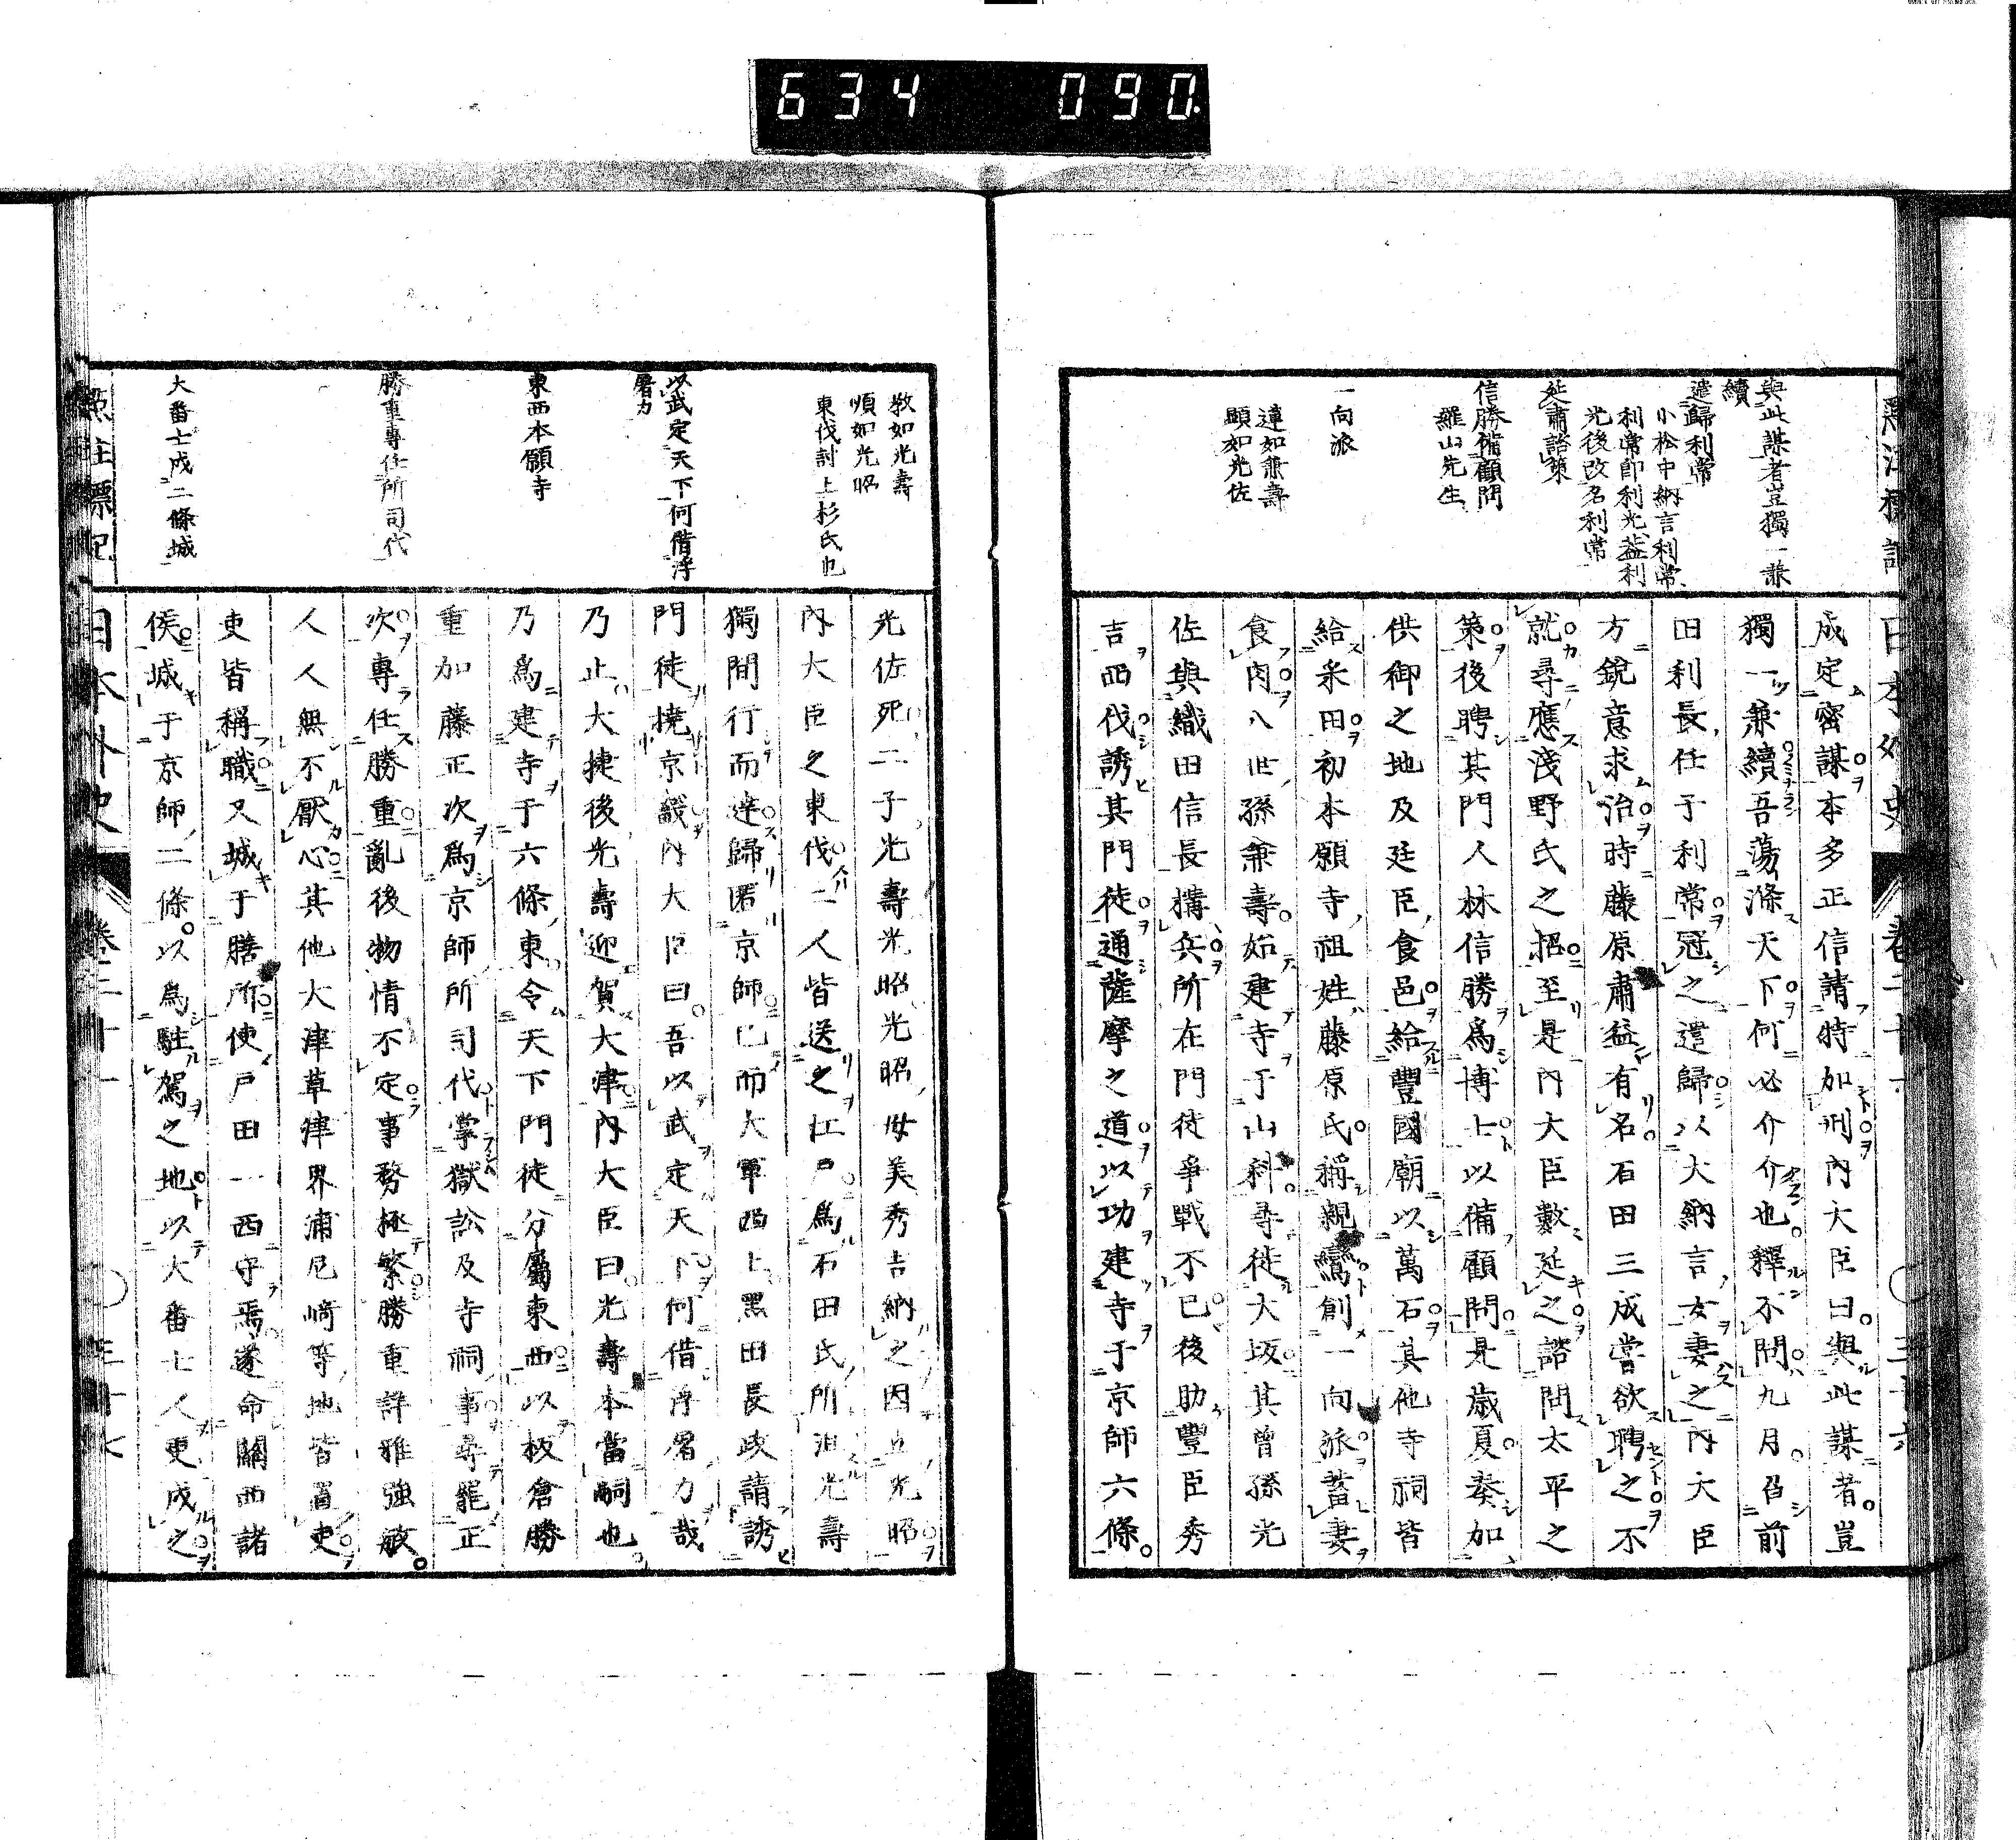 634 090
與此謀者豈獨一兼
續
遣歸利常
小松中納言利常
利常卽利光蓋利
光後改名利常
延肅諮策
信勝備顧問
羅山先生
一向派
蓮如兼壽
顯如光佐
成定密謀本多正信請特加刑內大臣曰與此謀者豈
獨一兼續吾蕩滌天下何必介介也釋不問九月召前
田利長任子利常冠之遣歸以大納言女妻之內大臣
方銳意求治時藤原肅益有名石田三成嘗欲聘之不
就尋應淺野氏之招至是內大臣數延之諮問太平之
策後聘其門人林信勝爲博士以備顧問是歲夏奏加
供御之地及廷臣食邑給豐國廟以萬石其他寺祠皆
給釆田初本願寺祖姓藤原氏稱親鸞創一向派蓄妻
食肉八世孫兼壽始建寺于山科尋徙大坂其曾孫光
佐與織田信長搆兵所在門徒爭戰不已後助豐臣秀
吉西伐誘其門徒通薩摩之道以功建寺于京師六條
敎如光壽
順如光昭
東伐討上杉氏也
以武定天下何借浮
屠力
東西本願寺
勝重專任所司代
大番士戍二條城
光佐死二子光壽光昭光昭母美秀吉納之因立光昭
內大臣之東伐二人皆送之江戶爲石田氏所沮光壽
獨間行而達歸匿京師已而大軍西上黑田長政請誘
門徒撓京畿內大臣曰吾以武定天下何借浮屠力哉
乃止大捷後光壽迎賀大津內大臣曰光壽本當嗣也
乃爲建寺于六條東令天下門徒分屬東西以板倉勝
重加藤正次爲京師所司代掌獄訟及寺祠事尋罷正
次專任勝重亂後物情不定事務極繁勝重詳雅強敏
人人無不厭心其他大津草津界浦尼崎等地皆置吏
吏皆稱職又城于膳所使戶田一西守焉遂命關西諸
侯城于京師二條以爲駐駕之地以大番士人更戍之
點註標記
日本外史 卷二十一